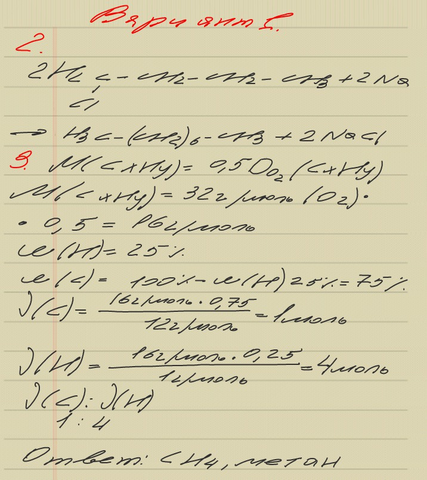 Вариант 1.
2.
2H₂C-CH₂-CH₂-CH₃ + 2Na
Cl
→ H₃C-(CH₂)₆-CH₃ + 2NaCl
3. M(CxHy) = 0,5D O₂ (CxHy)
M(CxHy) = 32г/моль (O₂)·
· 0,5 = 16г/моль
w(H) = 25%
w(C) = 100% - w(H) 25% = 75%
ν(C) = 16г/моль · 0,75 / 12г/моль = 1моль
ν(H) = 16г/моль · 0,25 / 1г/моль = 4моль
ν(C) : ν(H)
1 : 4
Ответ: CH₄, метан